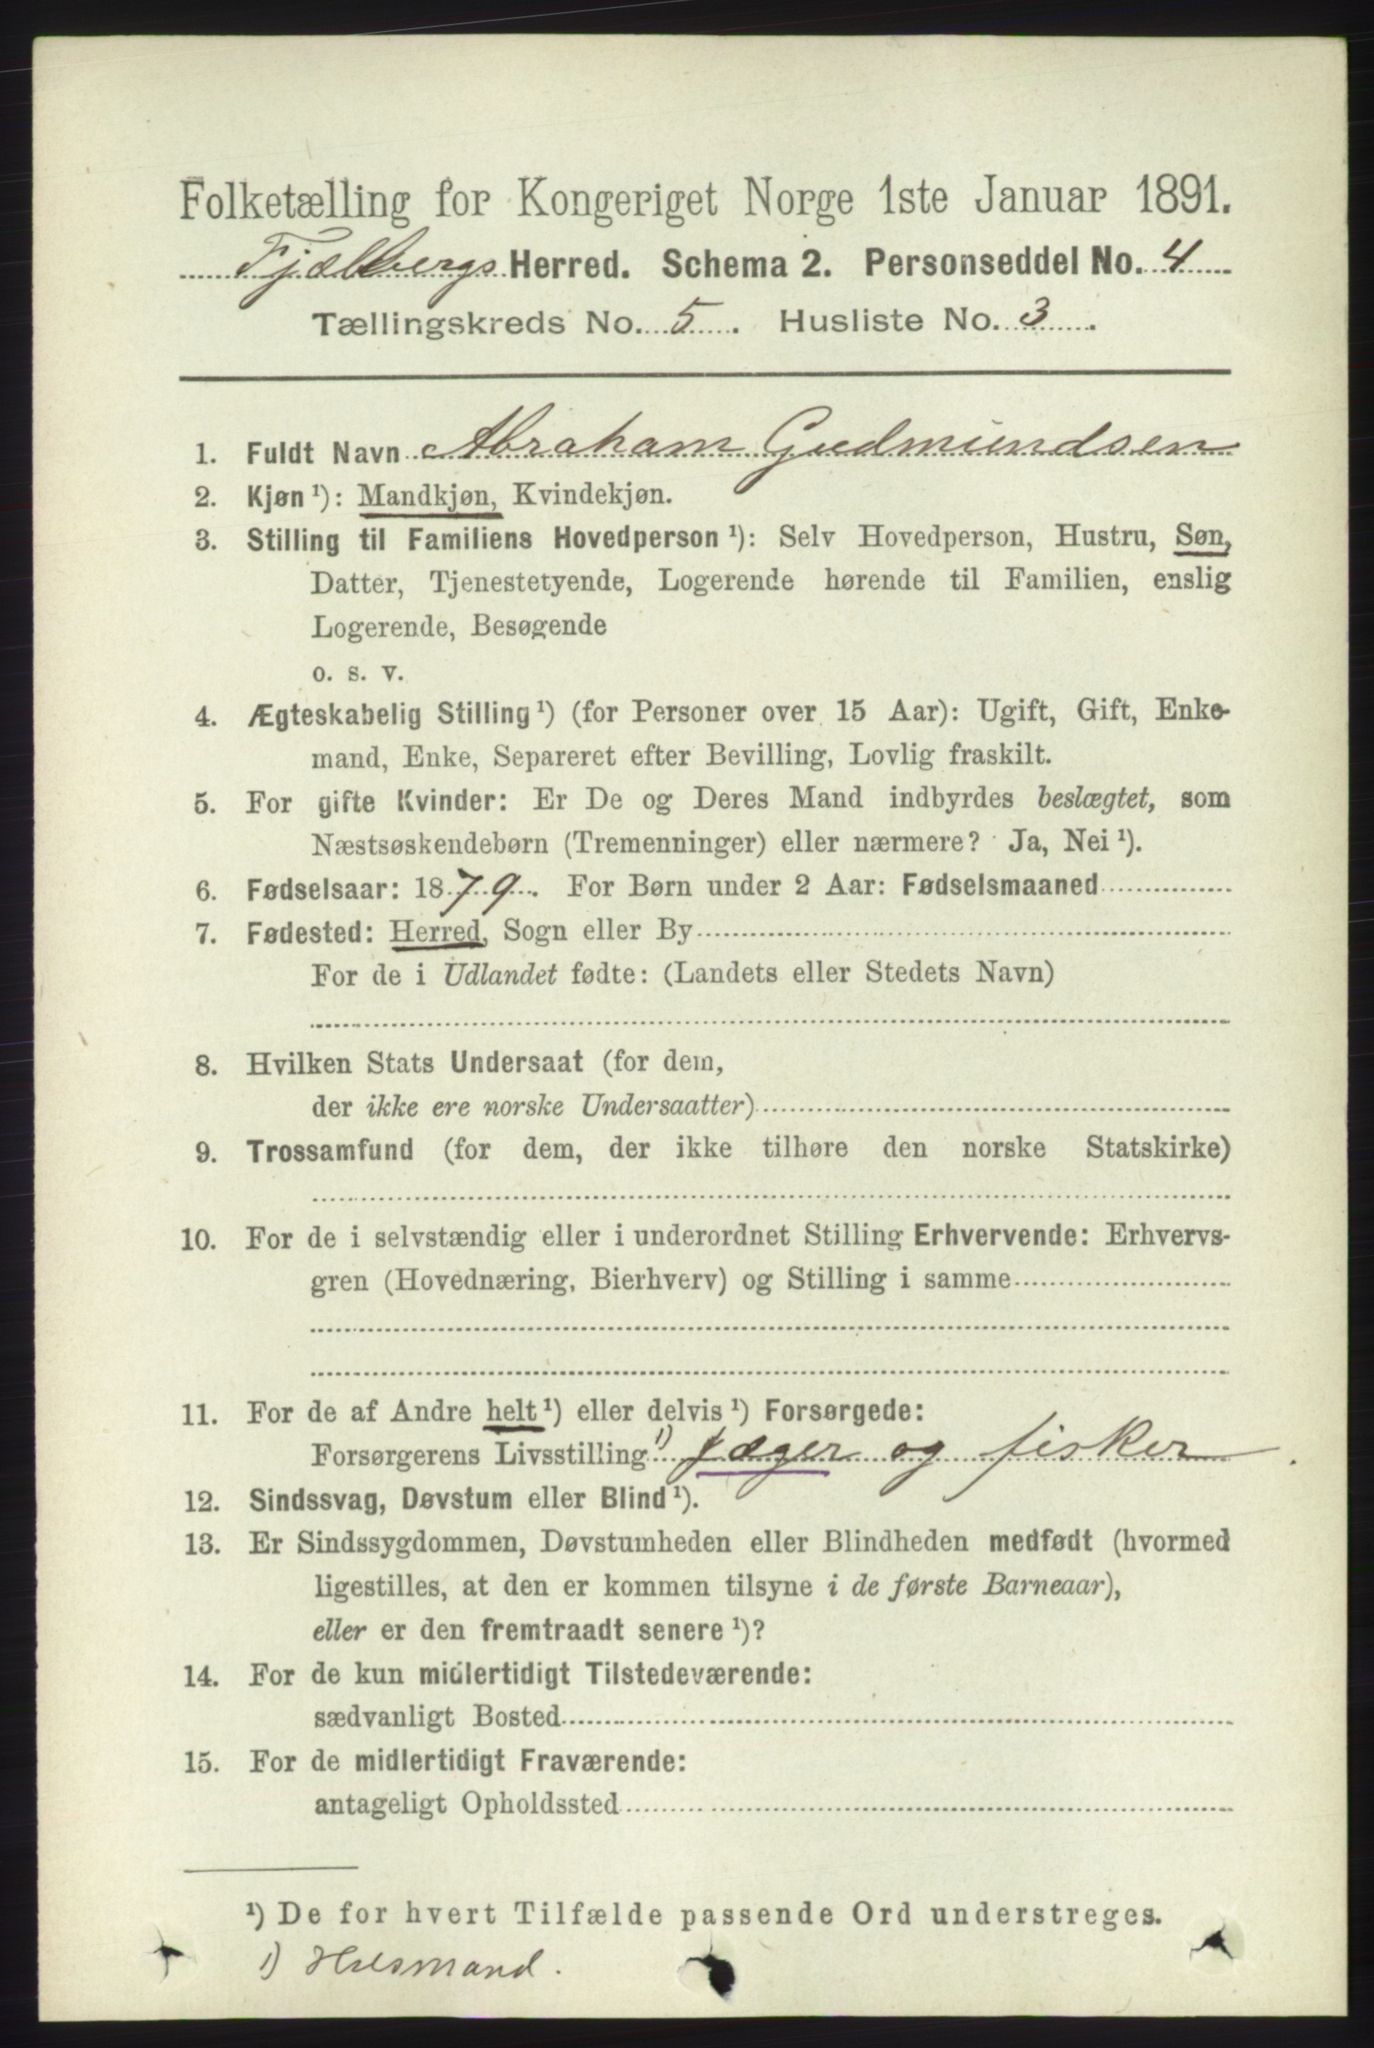 Folketælling for Kongeriget Norge 1ste Januar 1891.
Fjælbergs Herred. Schema 2. Personseddel No. 4
Tællingskreds No. 5. Husliste No. 3.
1. Fuldt Navn Abraham Gudmundsen
2. Kjøn ¹): Mandkjøn, Kvindekjøn.
3. Stilling til Familiens Hovedperson ¹): Selv Hovedperson, Hustru, Søn,
Datter, Tjenestetyende, Logerende hørende til Familien, enslig
Logerende, Besøgende
o. s. v.
4. Ægteskabelig Stilling ¹) (for Personer over 15 Aar): Ugift, Gift, Enke-
mand, Enke, Separeret efter Bevilling, Lovlig fraskilt.
5. For gifte Kvinder: Er De og Deres Mand indbyrdes beslægtet, som
Næstsøskendebørn (Tremenninger) eller nærmere? Ja, Nei ¹).
6. Fødselsaar: 1879. For Børn under 2 Aar: Fødselsmaaned
7. Fødested: Herred, Sogn eller By
For de i Udlandet fødte: (Landets eller Stedets Navn)
8. Hvilken Stats Undersaat (for dem,
der ikke ere norske Undersaatter)
9. Trossamfund (for dem, der ikke tilhøre den norske Statskirke)
10. For de i selvstændig eller i underordnet Stilling Erhvervende: Erhvervs-
gren (Hovednæring, Bierhverv) og Stilling i samme
11. For de af Andre helt ¹) eller delvis ¹) Forsørgede:
Forsørgerens Livsstilling ¹) Jæger og fisker.
12. Sindssvag, Døvstum eller Blind ¹).
13. Er Sindssygdommen, Døvstumheden eller Blindheden medfødt (hvormed
ligestilles, at den er kommen tilsyne i de første Barneaar),
eller er den fremtraadt senere ¹)?
14. For de kun midlertidigt Tilstedeværende:
sædvanligt Bosted
15. For de midlertidigt Fraværende:
antageligt Opholdssted
¹) De for hvert Tilfælde passende Ord understreges.
1) Husmand.